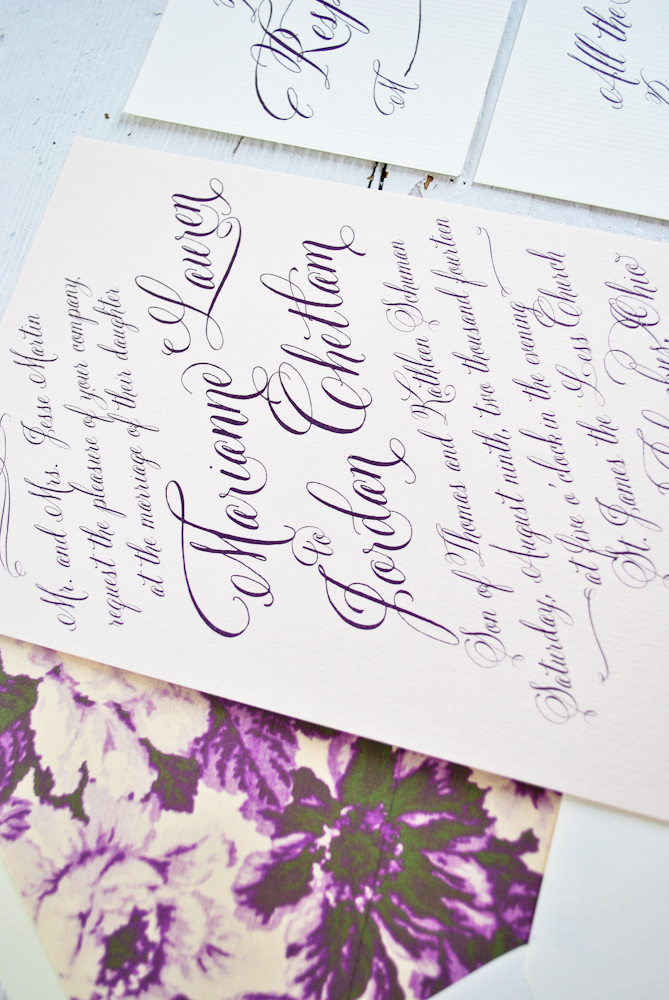 Resp
M
All the
Mr. and Mrs. Jesse Martin
request the pleasure of your company,
at the marriage of their daughter
Marianne Lauren
to
Jordan Chetham
Son of Thomas and Kathleen Schuman
Saturday, August ninth, two thousand fourteen
at five o'clock in the evening
St. James the Less Church
Ohio